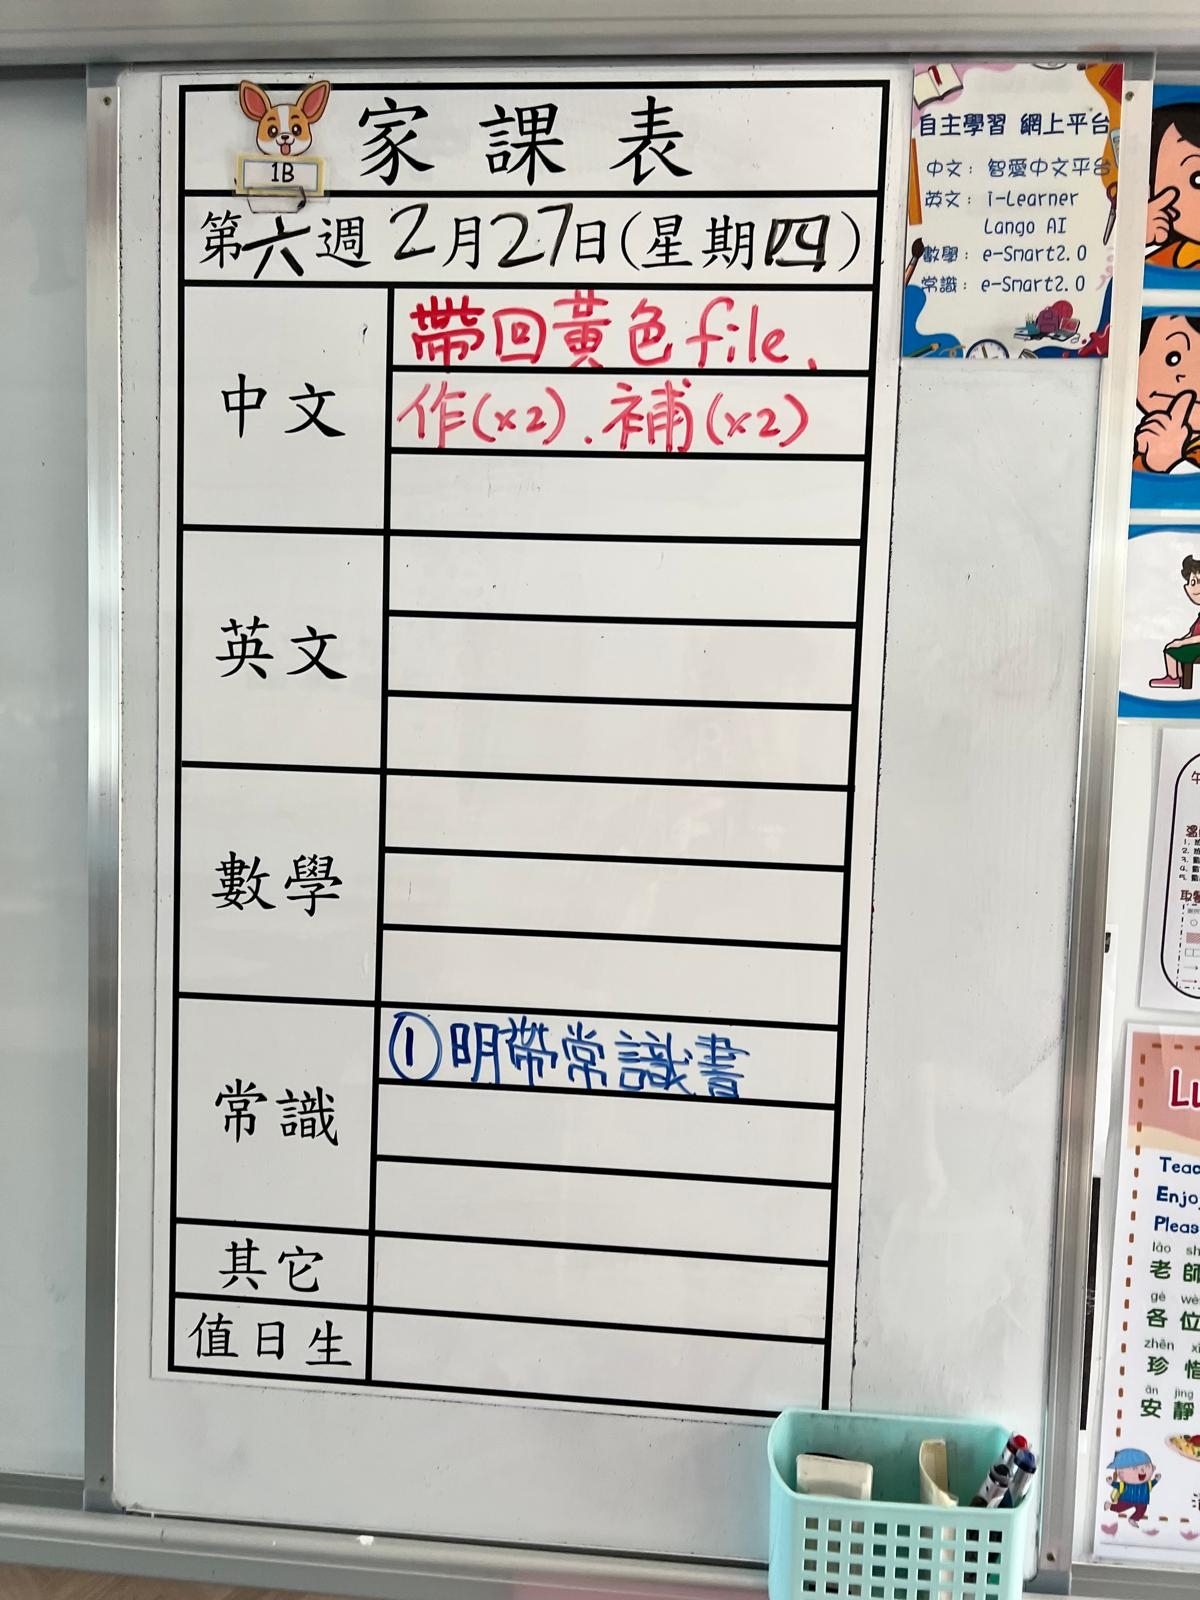 1B
家課表
第六週 2月27日(星期四)
中文
帶回黃色file、
作(x2). 補(x2)
英文
數學
常識
① 明帶常識書
其它
值日生
自主學習 網上平台
中文：智愛中文平台
英文：i-Learner
Lango AI
數學：e-Smart2.0
常識：e-Smart2.0
午
1.
2.
3.
4.
5.
Lu
Teac
Enjo
Pleas
lǎo sh
老 師
gè wè
各 位
zhēn xī
珍 惜
ān jìng
安 靜